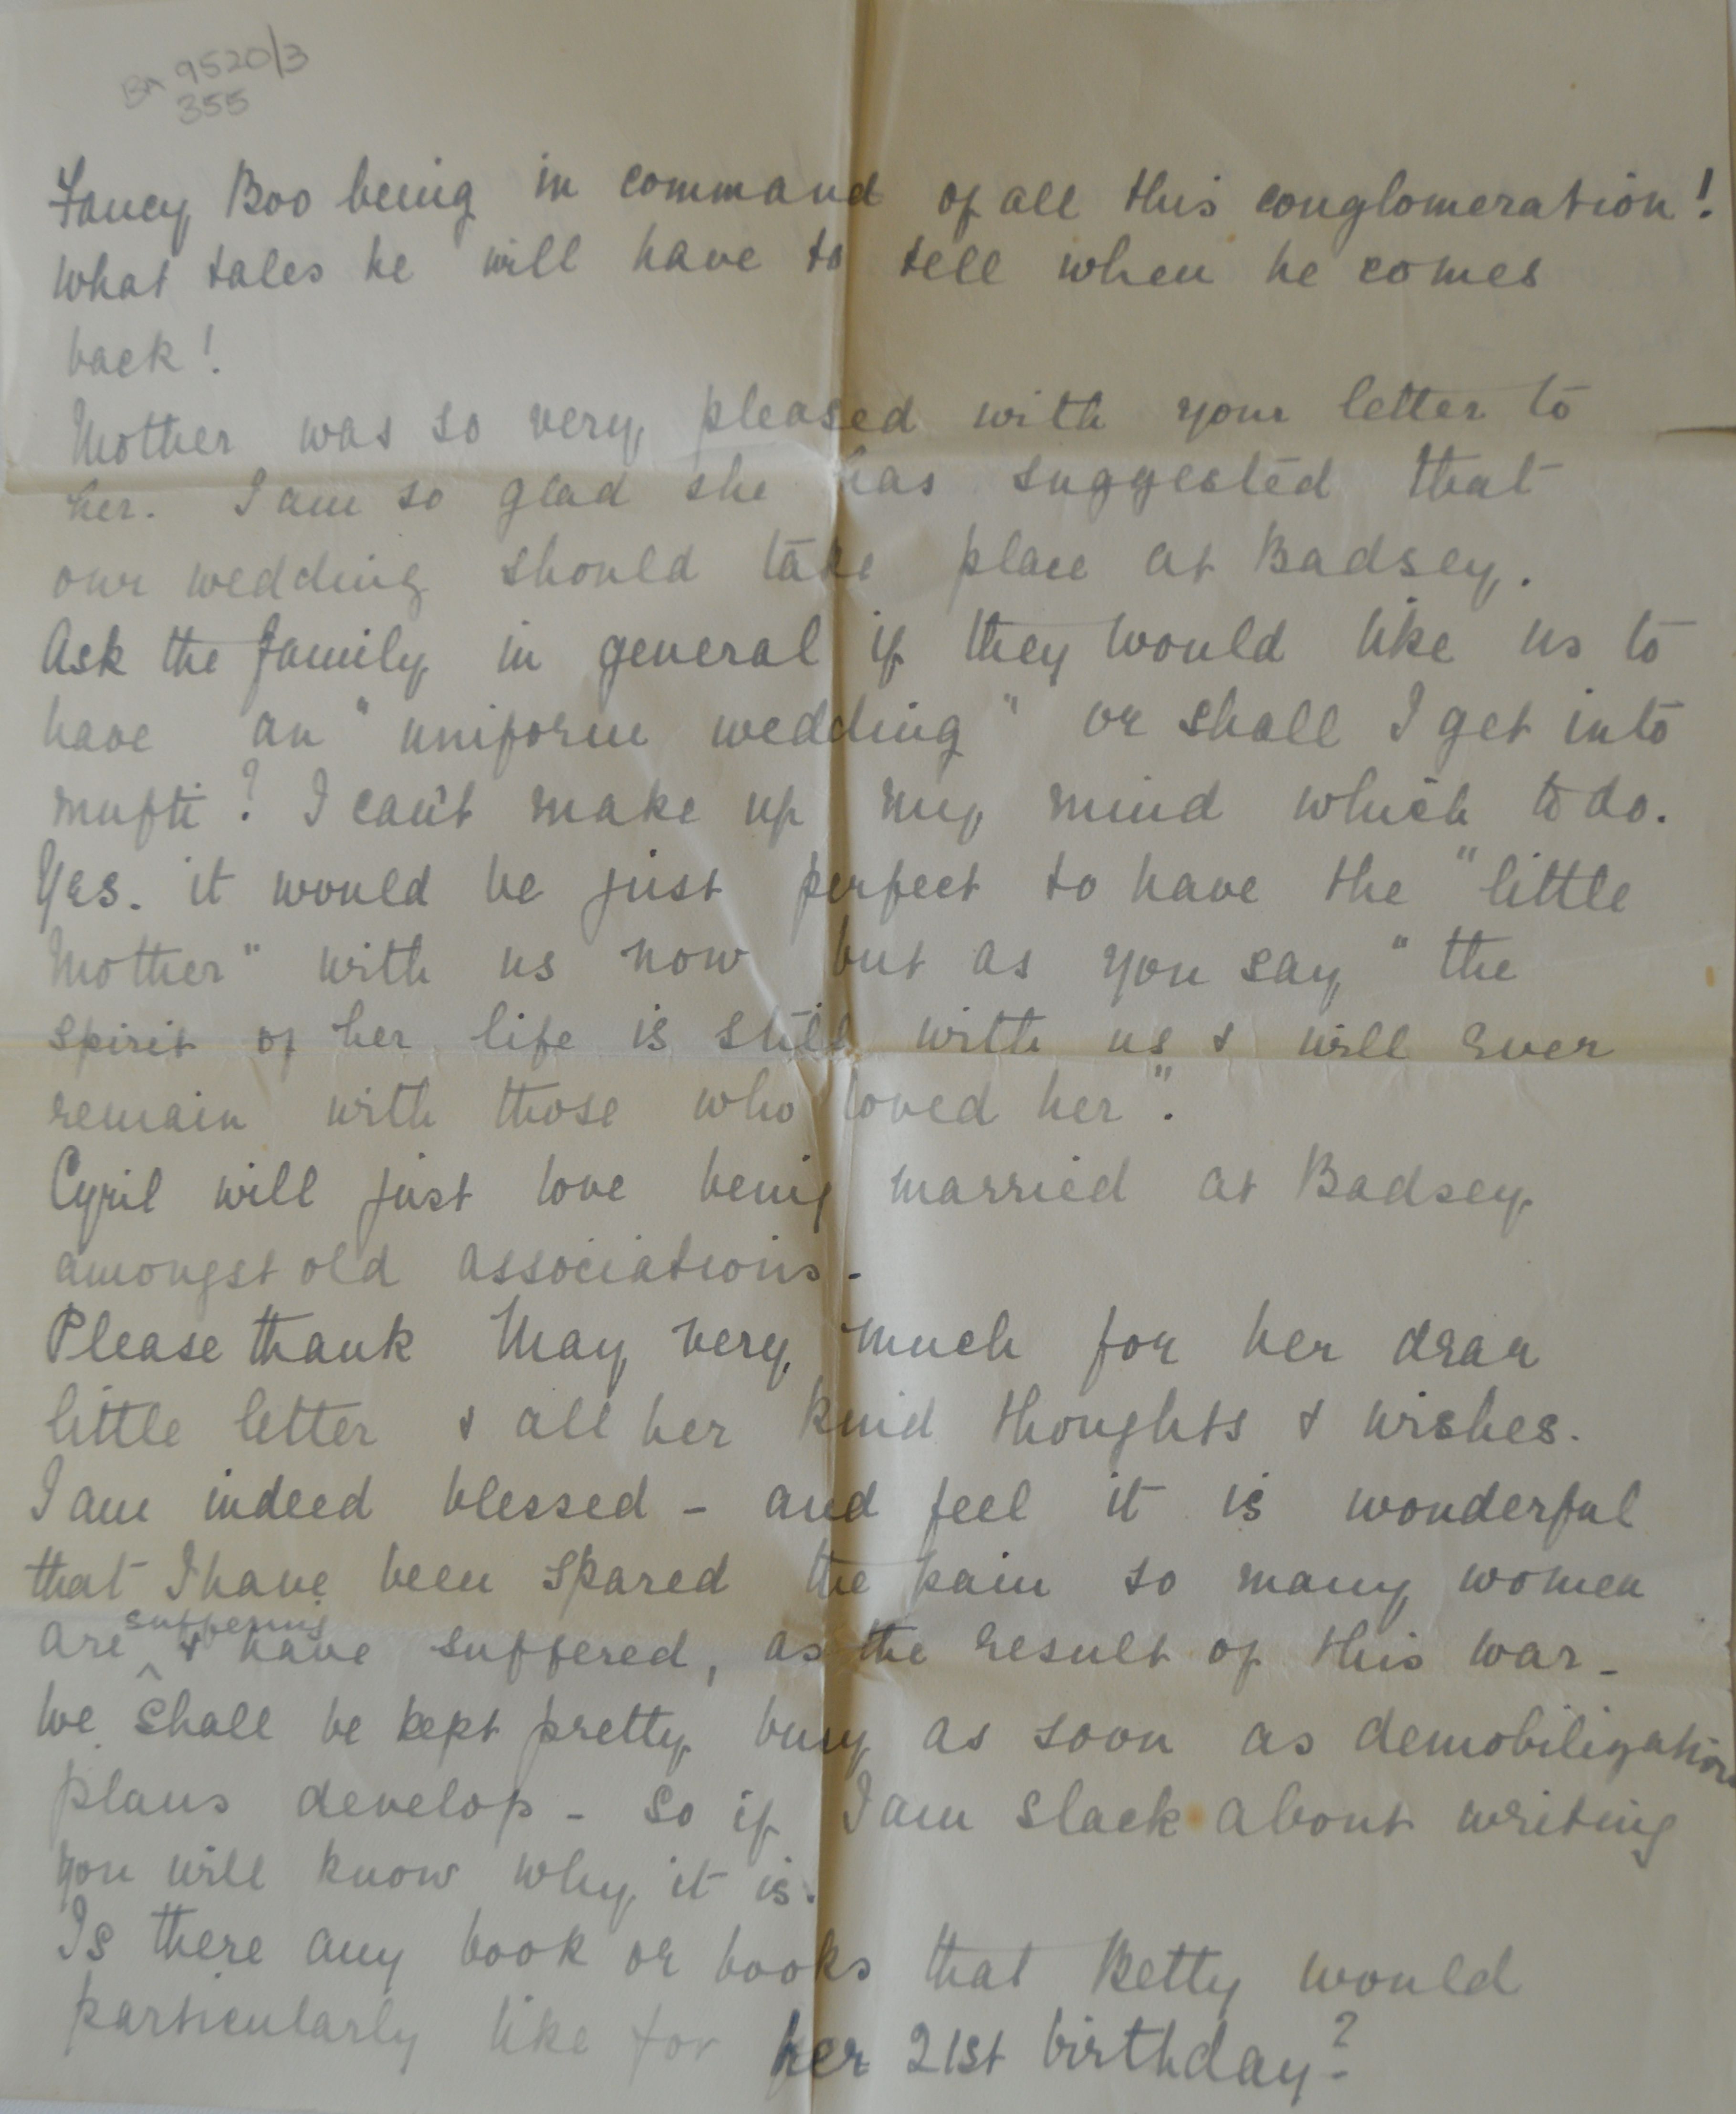 Bn 9520/3
355
Fancy Boo being in command of all this conglomeration!
What tales he will have to tell when he comes
back!
Mother was so very pleased with your letter to
her. I am so glad she has suggested that
our wedding should take place at Badsey.
Ask the family in general if they would like us to
have an "uniform wedding" or shall I get into
mufti? I can't make up my mind which to do.
Yes. it would be just perfect to have the "little
Mother" with us now but as you say "the
spirit of her life is still with us & will ever
remain with those who loved her".
Cyril will just love being married at Badsey
amongst old associations-
Please thank May very much for her dear
little letter & all her kind thoughts & wishes.
I am indeed blessed - and feel it is wonderful
that I have been spared the pain so many women
are suffering & have suffered, as the result of this war-
We shall be kept pretty busy as soon as demobilization
plans develop - so if I am slack about writing
you will know why it is.
Is there any book or books that Betty would
particularly like for her 21st birthday?